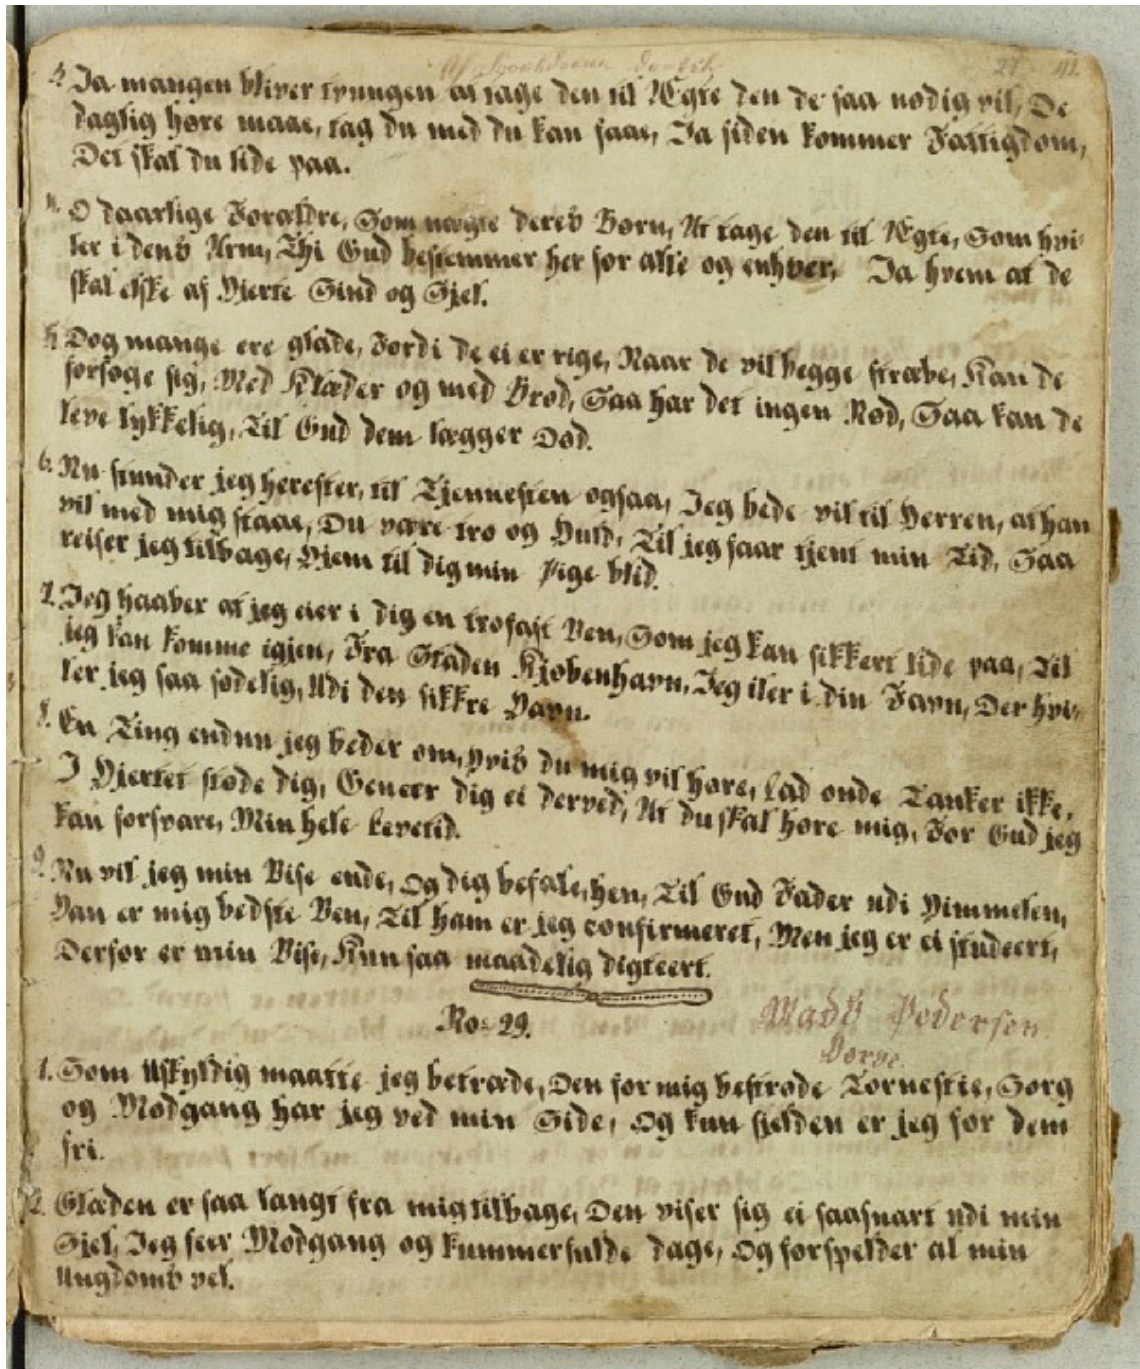 27 41.
3. Ja mangen bliver tvungen at tage den til Ægte den de saa nødig vil, De
daglig høre maae, tag du med du kan faae, Ja siden kommer Fattigdom,
Det skal du lide paa.
4. O daarlige Forældre, Som nægte deres Børn, At tage den til Ægte, Som hvi-
ler i dens Arm, Thi Gud bestemmer her for alle og enhver, Ja hvem at de
skal elske af Hjerte Sind og Sjel.
5. Dog mange ere glade, Fordi de ei er rige, Naar de vil begge stræbe, Kan de
forsøge sig, Med Klæder og med Brød, Saa har det ingen Nød, Saa kan de
leve lykkelig, Til Gud dem lægger Død.
6. Nu stunder jeg herefter, til Tjennesten ogsaa, Jeg bede vil til Herren, at han
vil med mig staae, Du være tro og Huld, Til jeg faar tjent min Tid, Saa
reiser jeg tilbage, Hjem til dig min Pige blid.
7. Jeg haaber at jeg eier i dig en trofast Ven, Som jeg kan sikkert lide paa, Til
jeg kan komme igjen, Fra Staden Kjøbenhavn, Jeg iler i din Favn, Der hvi-
ler jeg saa sødelig, Udi den sikkre Havn.
8. En Ting endnu jeg beder om, Hvis du mig vil høre, Lad onde Tanker ikke,
I Hjertet støde dig, Geneer dig ei derved, At du skal høre mig, For Gud jeg
kan forsvare, Min hele Levetid.
9. Nu vil jeg min Vise ende, Og dig befale, hen, Til Gud Fader udi Himmelen,
Han er mig bedste Ven, Til ham er jeg confirmeret, Men jeg er ei studeert,
Derfor er min Vise, Kun saa maadelig digteert.
No: 29. Mads Pedersen
Horne.
1. Som Uskyldig maatte jeg betræde, Den for mig bestrøde Tornestie, Sorg
og Modgang har jeg ved min Side, Og kun sjelden er jeg for dem
fri.
2. Glæden er saa langt fra mig tilbage, Den viser sig ei saasnart udi min
Sjel, Jeg seer Modgang og kummerfulde dage, Og forspelder al min
Ungdoms vel.